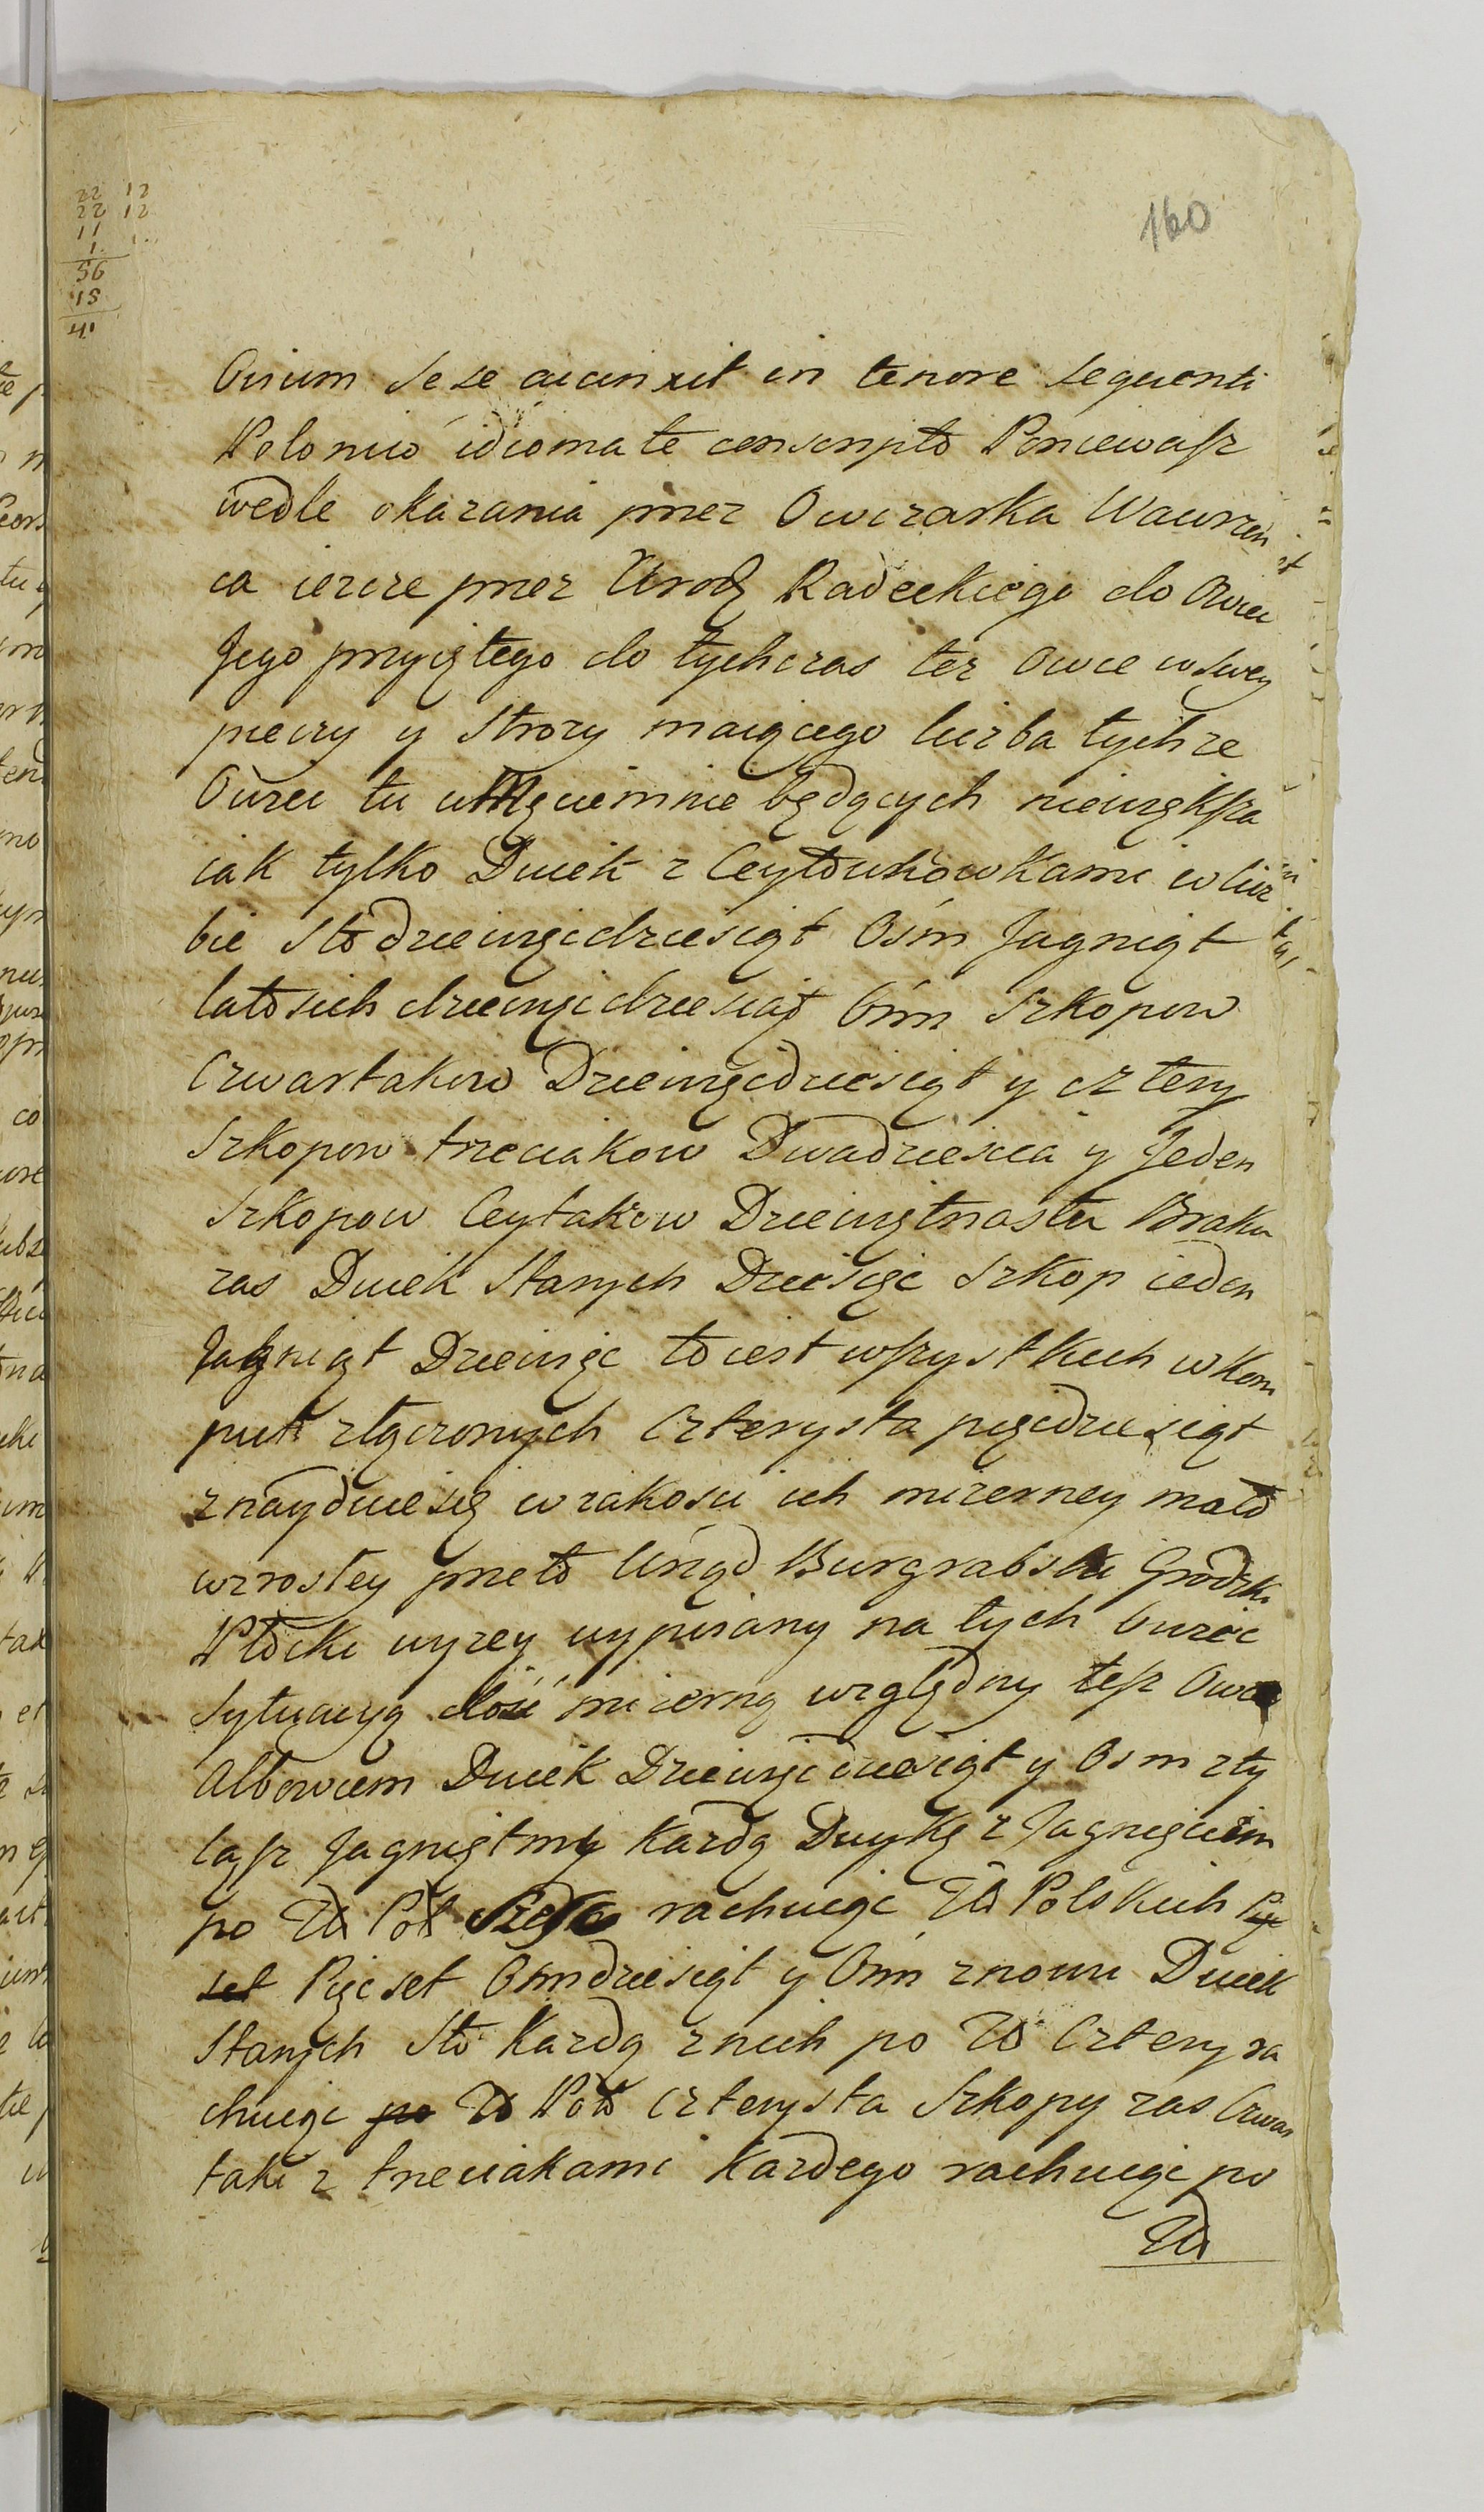 22 12
22 12
11 1.
1.
56
15
41
160
Ovium Se se accinxit in tenore sequenti
Polonico idiomate conscripto Poniewasz
wedle okazania przez Owczarka Wawrzeń
ca ieszcze przez Urodz Radeckiego do Owiec
Jego przyiętego do tychczas tez Owce w swey
pieczy y Strozy maiącego liczba tychze
Owiec tu w Męciminie będących niewiększa
iak tylko Dwiek z Ceytowkowkami w licz
bie Sto dziewięcdziesiąt Osm Jagniąt
latosich dziewięcdziesiąt Osm Szkopow
Czwartakow Dziewięcdziesiąt y cztery
Szkopow trzeciakow Dwadziescia y Jeden
Szkopow Ceytakow Dziewiętnastu Braku
zas Dwiek Starych Dziesięc Szkop ieden
Jagniąt Dziewięc to iest wszystkich w kom
put złączonych Czterysta pięcdziesiąt
znayduie się w iakosci ich mizerney mało
wzrostey przeto Urząd Burgrabski Grodzki
Płocki wyzey wypisany na tych Owiec
Sytuacyą dość mizerną względny tesz Owce
Albowiem Dwiek Dziewięcdziesiąt y Osm zty
ląsz Jagniętmy kazdą Dwykę z Jagnięciem
po Zł Pol rachuiąc Zł Polskich Pię
set Pięcset Osmdziesiąt y Osm znowu Dwiek
Starych Sto kazdą z nich po Zł Cztery ra
chuiąc po Zł Pol Czterysta Szkopy zas Czwar
taki z trzeciakami kazdego rachuiąc po
Zł